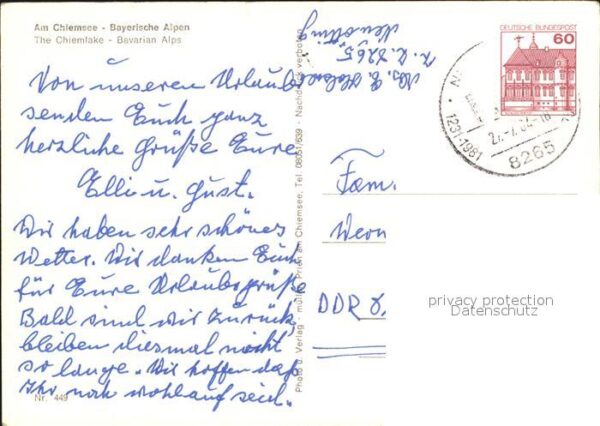 Am Chiemsee - Bayerische Alpen
The Chiemlake - Bavarian Alps
Von unseren Urlaub
senden Euch ganz
herzliche Grüße Eure
Elli u. Gust.
Wir haben sehr schönes
Wetter. Wir danken Euch
für Eure Urlaubsgrüße
Bald sind wir zurück,
bleiben diesmal nicht
so lange. Wir hoffen daß
Ihr noch wohlauf seid.
Nr. 449
Photo u. Verlag - Prien am Chiemsee, Tel. 08051/639 - Nachdruck verboten
8265
Neuötting
DEUTSCHE BUNDESPOST
60
1231-1981
8265
Fam.
Wern
DDR
privacy protection
Datenschutz